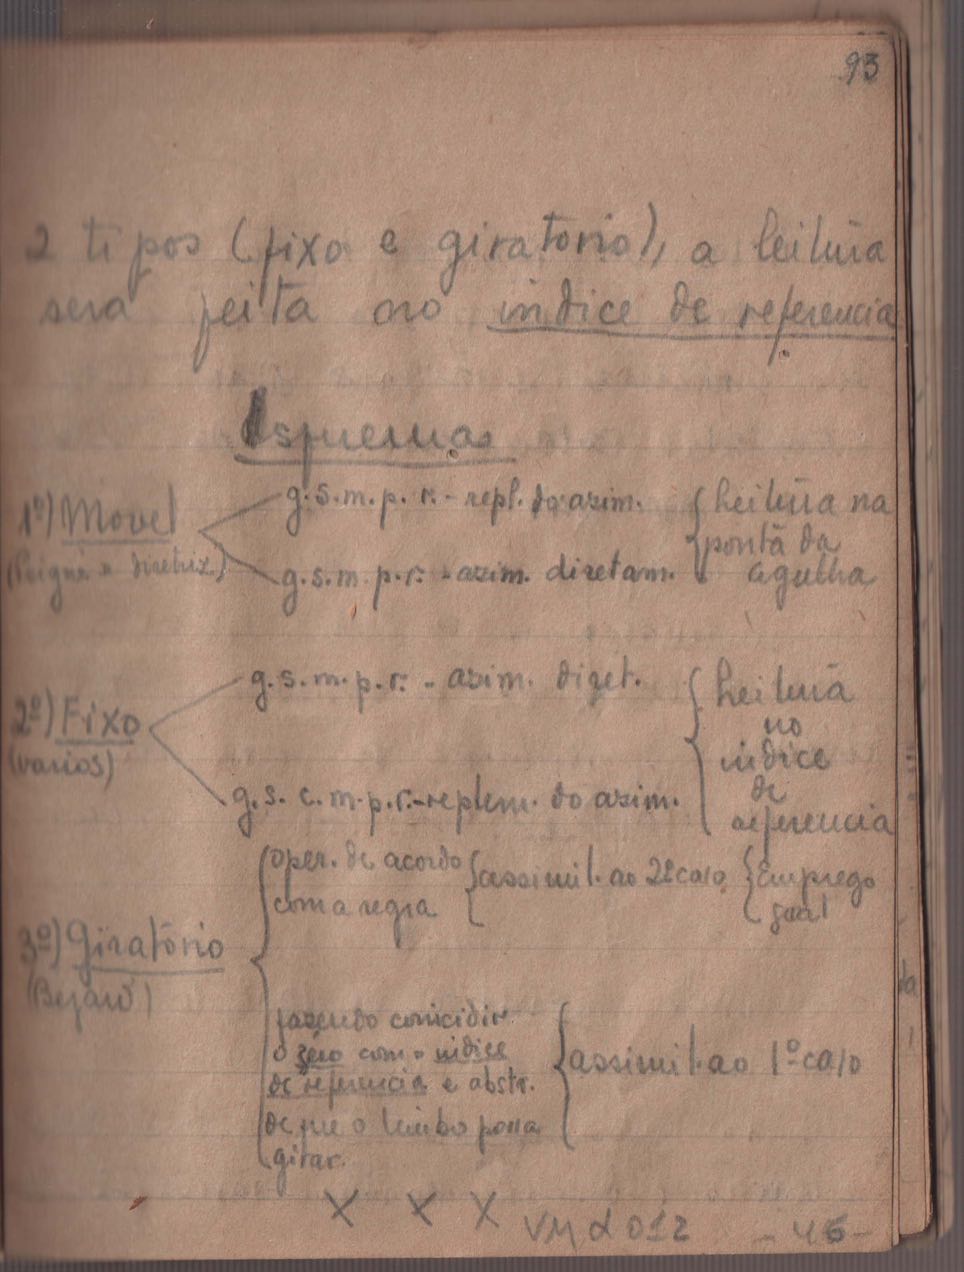 93
2 tipos (fixo e giratorio), a leitura
sera feita no indice de referencia
Esquemas
1º) Movel
(Peigné e diretriz)
g.s.m.p.r. - repl. do azim.
g.s.m.p.r. - azim. diretam.
Leitura na
ponta da
agulha
2º) Fixo
(varios)
g.s.m.p.r. - azim. diret.
g.s.c.m.p.r. - replem. do azim.
Leitura
no
indice
de
referencia
3º) Giratório
oper. de acordo
com a regra
assimil. ao 2º caso
Emprego
geral
fazendo coincidir
o zero com o indice
de referencia e abstr.
de que o limbo possa
girar.
assimil. ao 1º caso
X X X
- 46 -